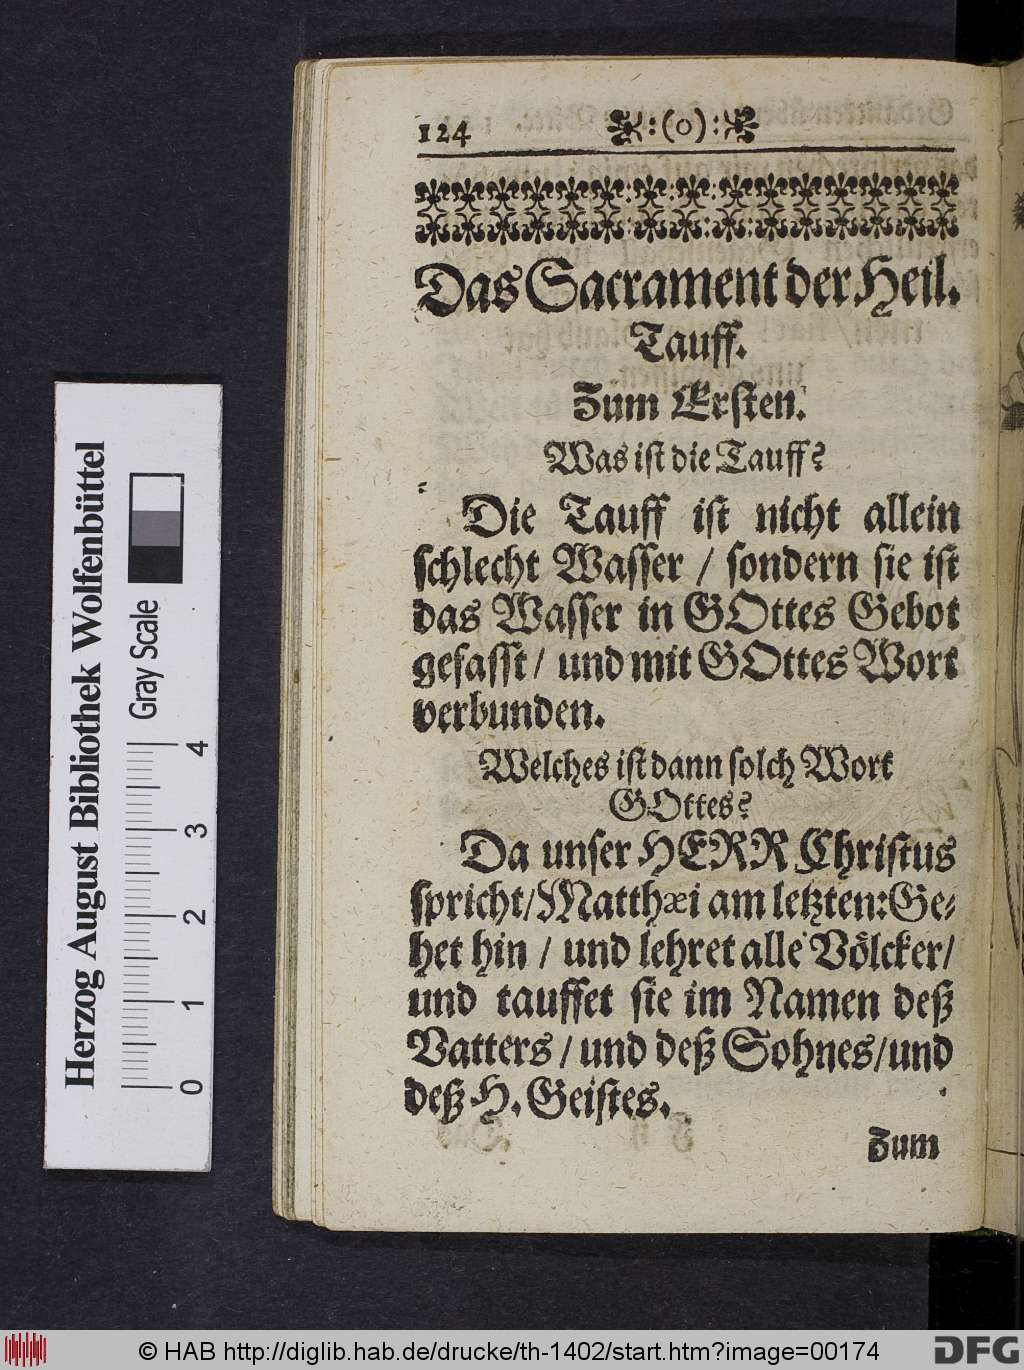 124 :(o):
Das Sacrament der Heil.
Tauff.
Zum Ersten.
Was ist die Tauff?
Die Tauff ist nicht allein
schlecht Wasser / sondern sie ist
das Wasser in GOttes Gebot
gefasst / und mit GOttes Wort
verbunden.
Welches ist dann solch Wort
GOttes?
Da unser HERR Christus
spricht/ Matthæi am letzten: Ge-
het hin / und lehret alle Völcker/
und tauffet sie im Namen deß
Vatters / und deß Sohnes/und
deß H. Geistes.
Zum
Herzog August Bibliothek Wolfenbüttel
Gray Scale
0 1 2 3 4
© HAB http://diglib.hab.de/drucke/th-1402/start.htm?image=00174
DFG